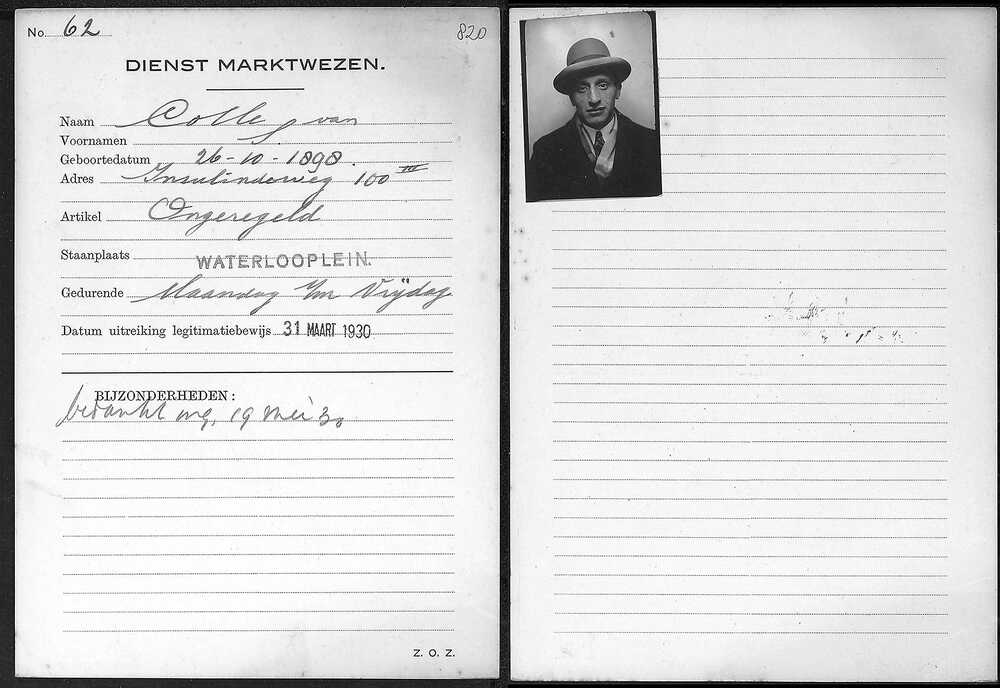 No. 62
820
DIENST MARKTWEZEN.
Naam Colle, van
Voornamen
Geboortedatum 26-10-1898.
Adres Insulindeweg 100 III
Artikel Ongeregeld
Staanplaats WATERLOOPLEIN.
Gedurende Maandag t/m Vrijdag
Datum uitreiking legitimatiebewijs 31 MAART 1930
BIJZONDERHEDEN:
bedankt m.g. 19 Mei 30
Z. O. Z.